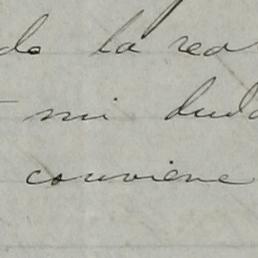 do la rea
mi duda
conviene